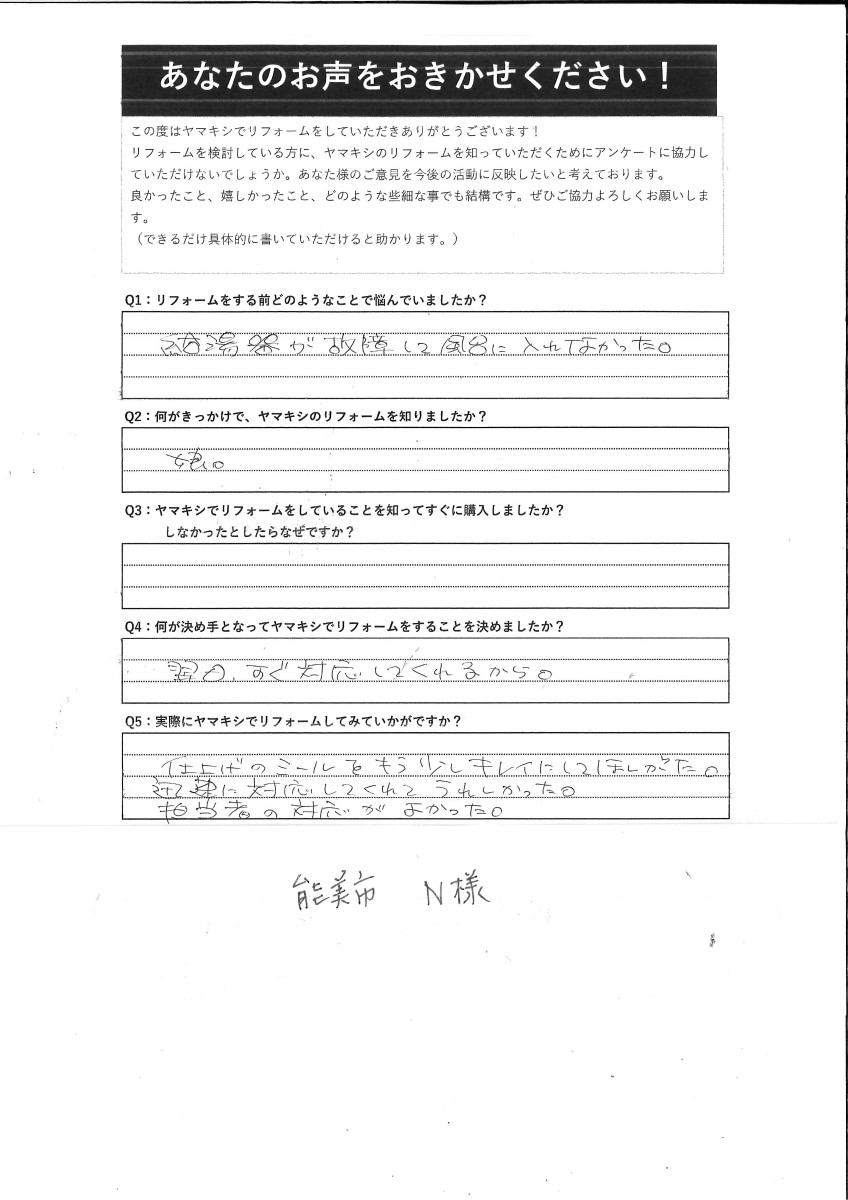 あなたのお声をおきかせください！
この度はヤマキシでリフォームをしていただきありがとうございます！
リフォームを検討している方に、ヤマキシのリフォームを知っていただくためにアンケートに協力し
ていただけないでしょうか。あなた様のご意見を今後の活動に反映したいと考えております。
良かったこと、嬉しかったこと、どのような些細な事でも結構です。ぜひご協力よろしくお願いしま
す。
（できるだけ具体的に書いていただけると助かります。）
Q1：リフォームをする前どのようなことで悩んでいましたか？
給湯器が故障して風呂に入れてなかった。
Q2：何がきっかけで、ヤマキシのリフォームを知りましたか？
Q3：ヤマキシでリフォームをしていることを知ってすぐに購入しましたか？
しなかったとしたらなぜですか？
Q4：何が決め手となってヤマキシでリフォームをすることを決めましたか？
翌日、すぐ対応してくれるから。
Q5：実際にヤマキシでリフォームしてみていかがですか？
仕上げのミールをもう少しキレイにしてほしかった。
迅速に対応してくれてうれしかった。
担当者の対応がよかった。
能美市 N様